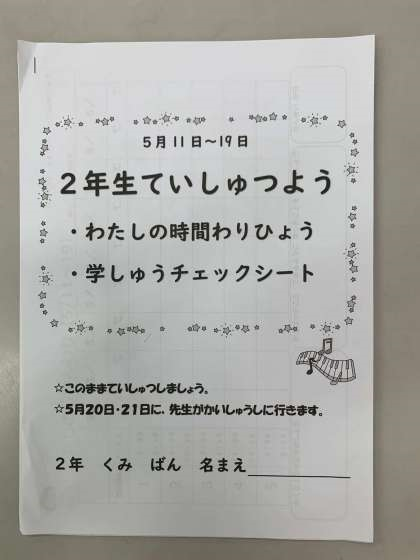 5月11日～19日
2年生ていしゅつよう
・わたしの時間わりひょう
・学しゅうチェックシート
☆このままていしゅつしましょう。
☆5月20日・21日に、先生がかいしゅうしに行きます。
2年　くみ　ばん　名まえ